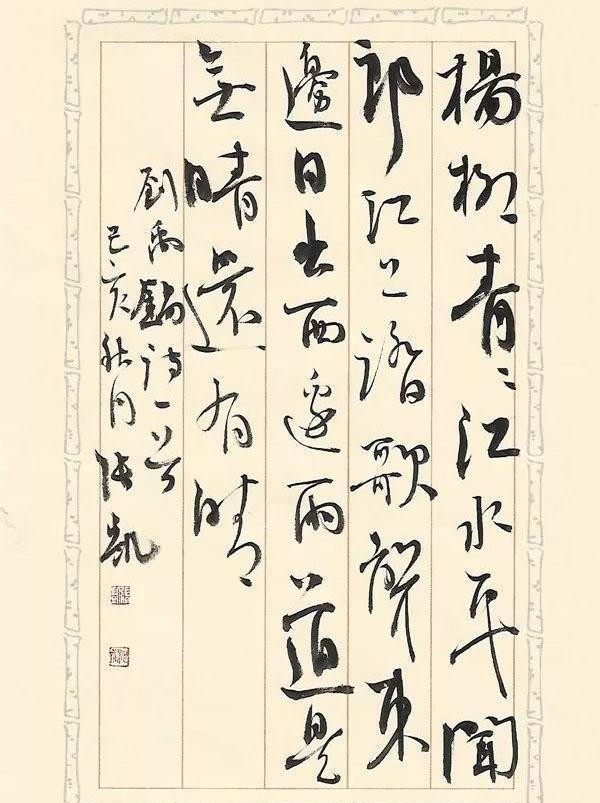 楊柳青々江水平聞
郎江上踏歌聲東
邊日出西邊雨道是
無晴還有晴
劉禹錫詩一首
己亥秋月張凱